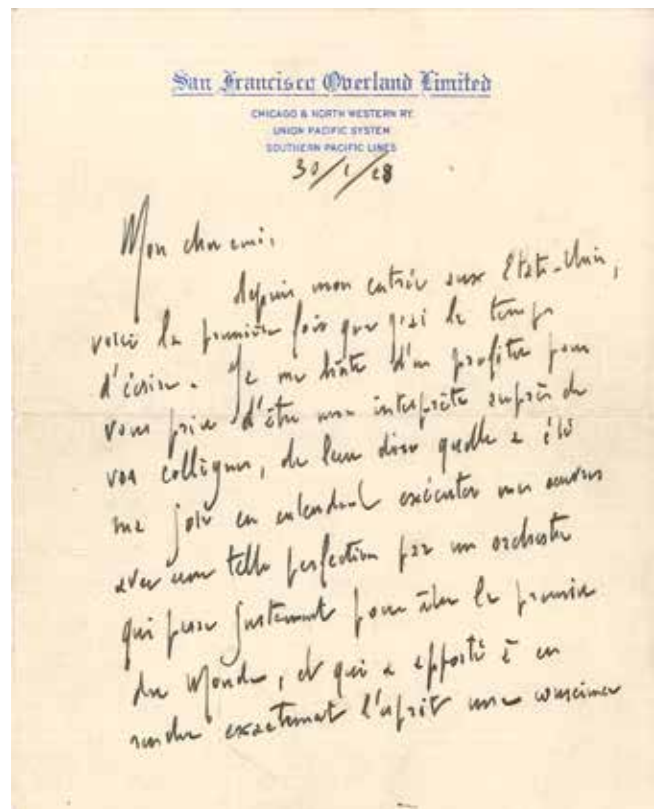 San Francisco Overland Limited
CHICAGO & NORTH WESTERN RY.
UNION PACIFIC SYSTEM
SOUTHERN PACIFIC LINES
30/1/28
Mon cher ami,
depuis mon entrée aux Etats-Unis,
voici la première fois que j'ai le temps
d'écrire. Je me hâte d'en profiter pour
vous prier d'être mon interprète auprès de
vos collègues, de leur dire quelle a été
ma joie en entendant exécuter mes oeuvres
avec une telle perfection par un orchestre
qui passe justement pour être le premier
du Monde, et qui a apporté à en
rendre exactement l'esprit une conscience